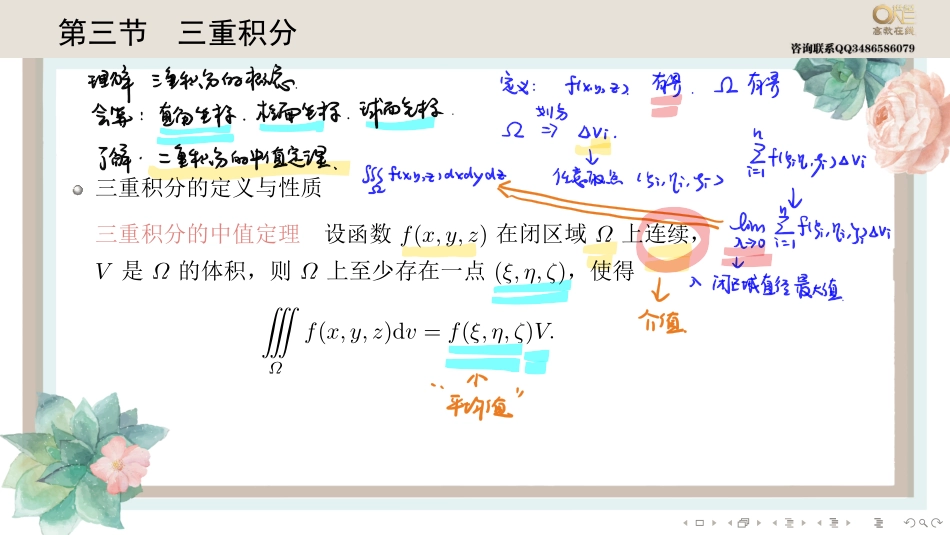 第三节 三重积分
ONE
高教在线
咨询联系QQ3486586079
理解 三重积分的概念.
会算: 直角坐标. 柱面坐标. 球面坐标.
了解. 三重积分的中值定理.
定义: f(x,y,z). 有界. Ω 有界
Ω ⇒ ΔVi.
划分
任意取点 (ξi, ηi, ζi)
∑ i=1 n f(ξi, ηi, ζi)ΔVi
∭Ω f(x,y,z)dxdydz
lim λ→0 ∑ i=1 n f(ξi, ηi, ζi)ΔVi
λ 闭区域直径最大值
三重积分的定义与性质
三重积分的中值定理 设函数 f(x, y, z) 在闭区域 Ω 上连续,
V 是 Ω 的体积，则 Ω 上至少存在一点 (ξ, η, ζ)，使得
介值
∭Ω f(x, y, z)dv = f(ξ, η, ζ)V.
“平均值”